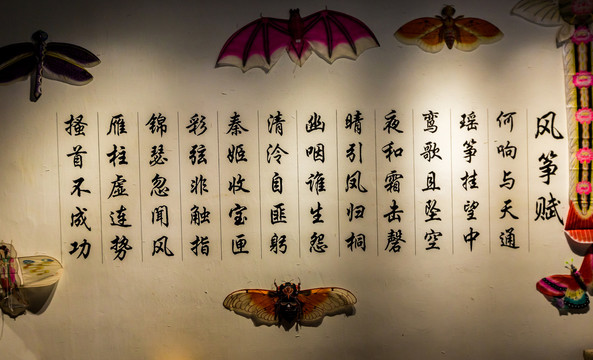 风筝赋
何响与天通
瑶筝挂望中
鸾歌且坠空
夜和霜击磬
晴引凤归桐
幽咽谁生怨
清泠自匪躬
秦姬收宝匣
彩弦非触指
锦瑟忽闻风
雁柱虚连势
搔首不成功